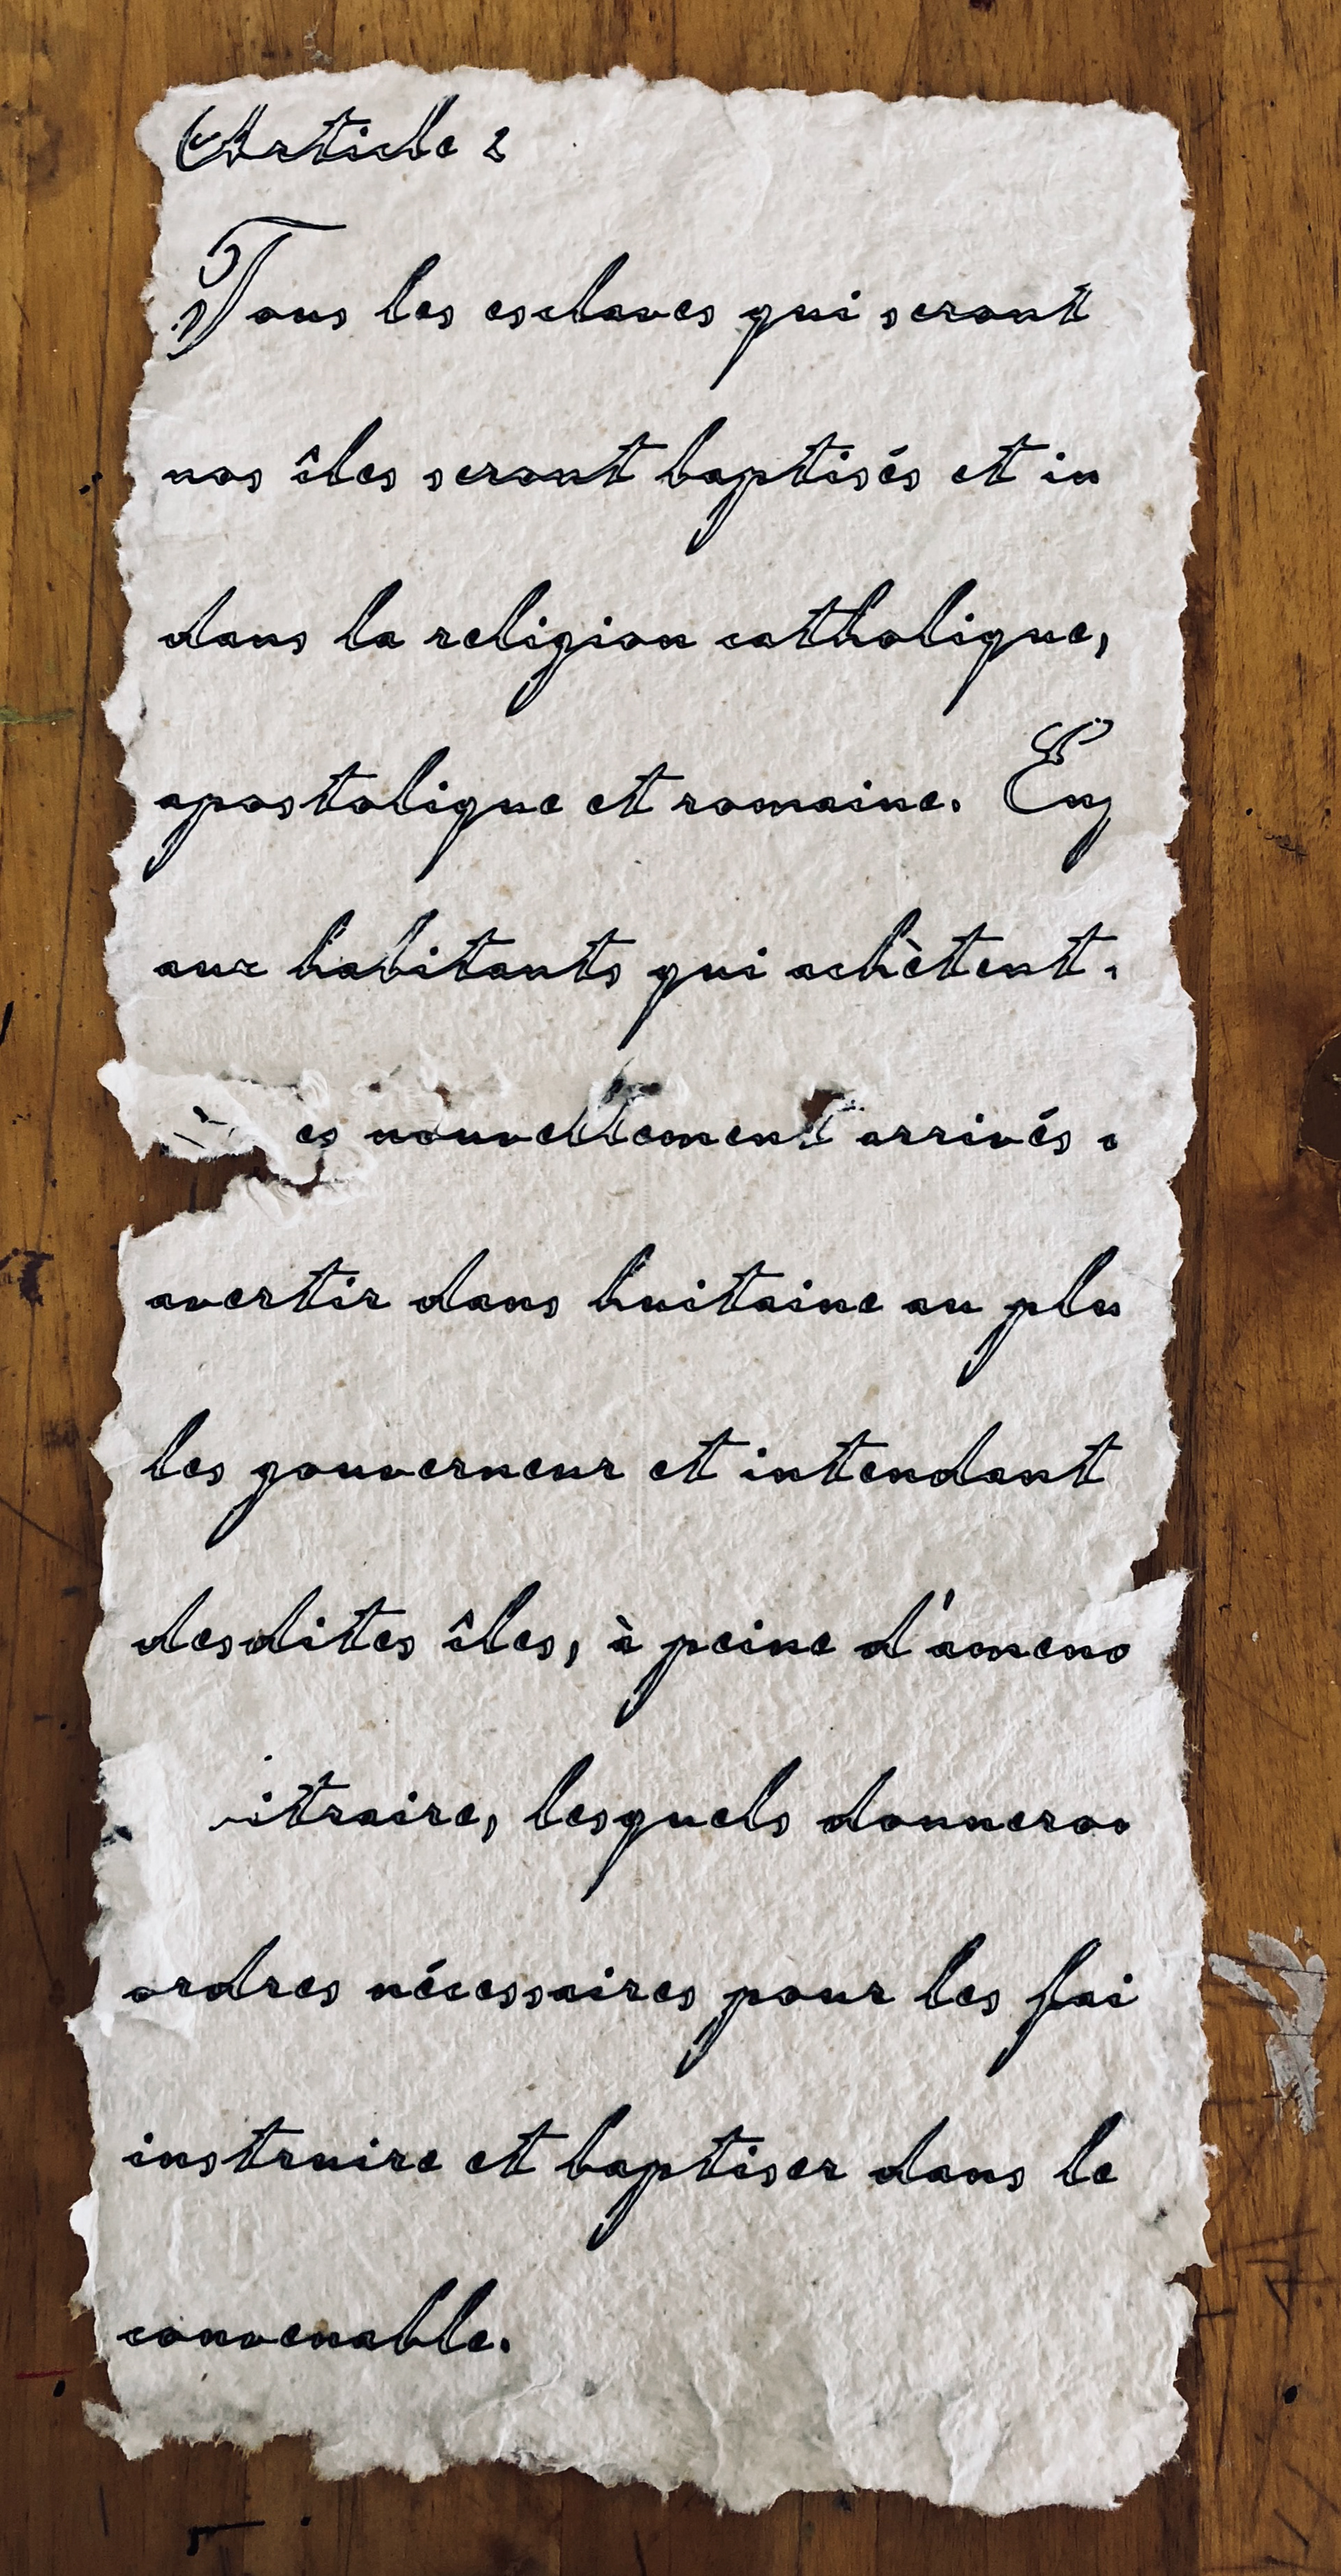 Article 2
Tous les esclaves qui seront
nos îles seront baptisés et in
dans la religion catholique,
apostolique et romaine. En
aux habitants qui achètent
es nouvellement arrivés
avertir dans huitaine au plu
les gouverneur et intendant
desdites îles, à peine d'amen
itraire, lesquels donnero
ordres nécessaires pour les fai
instruire et baptiser dans le
convenable.